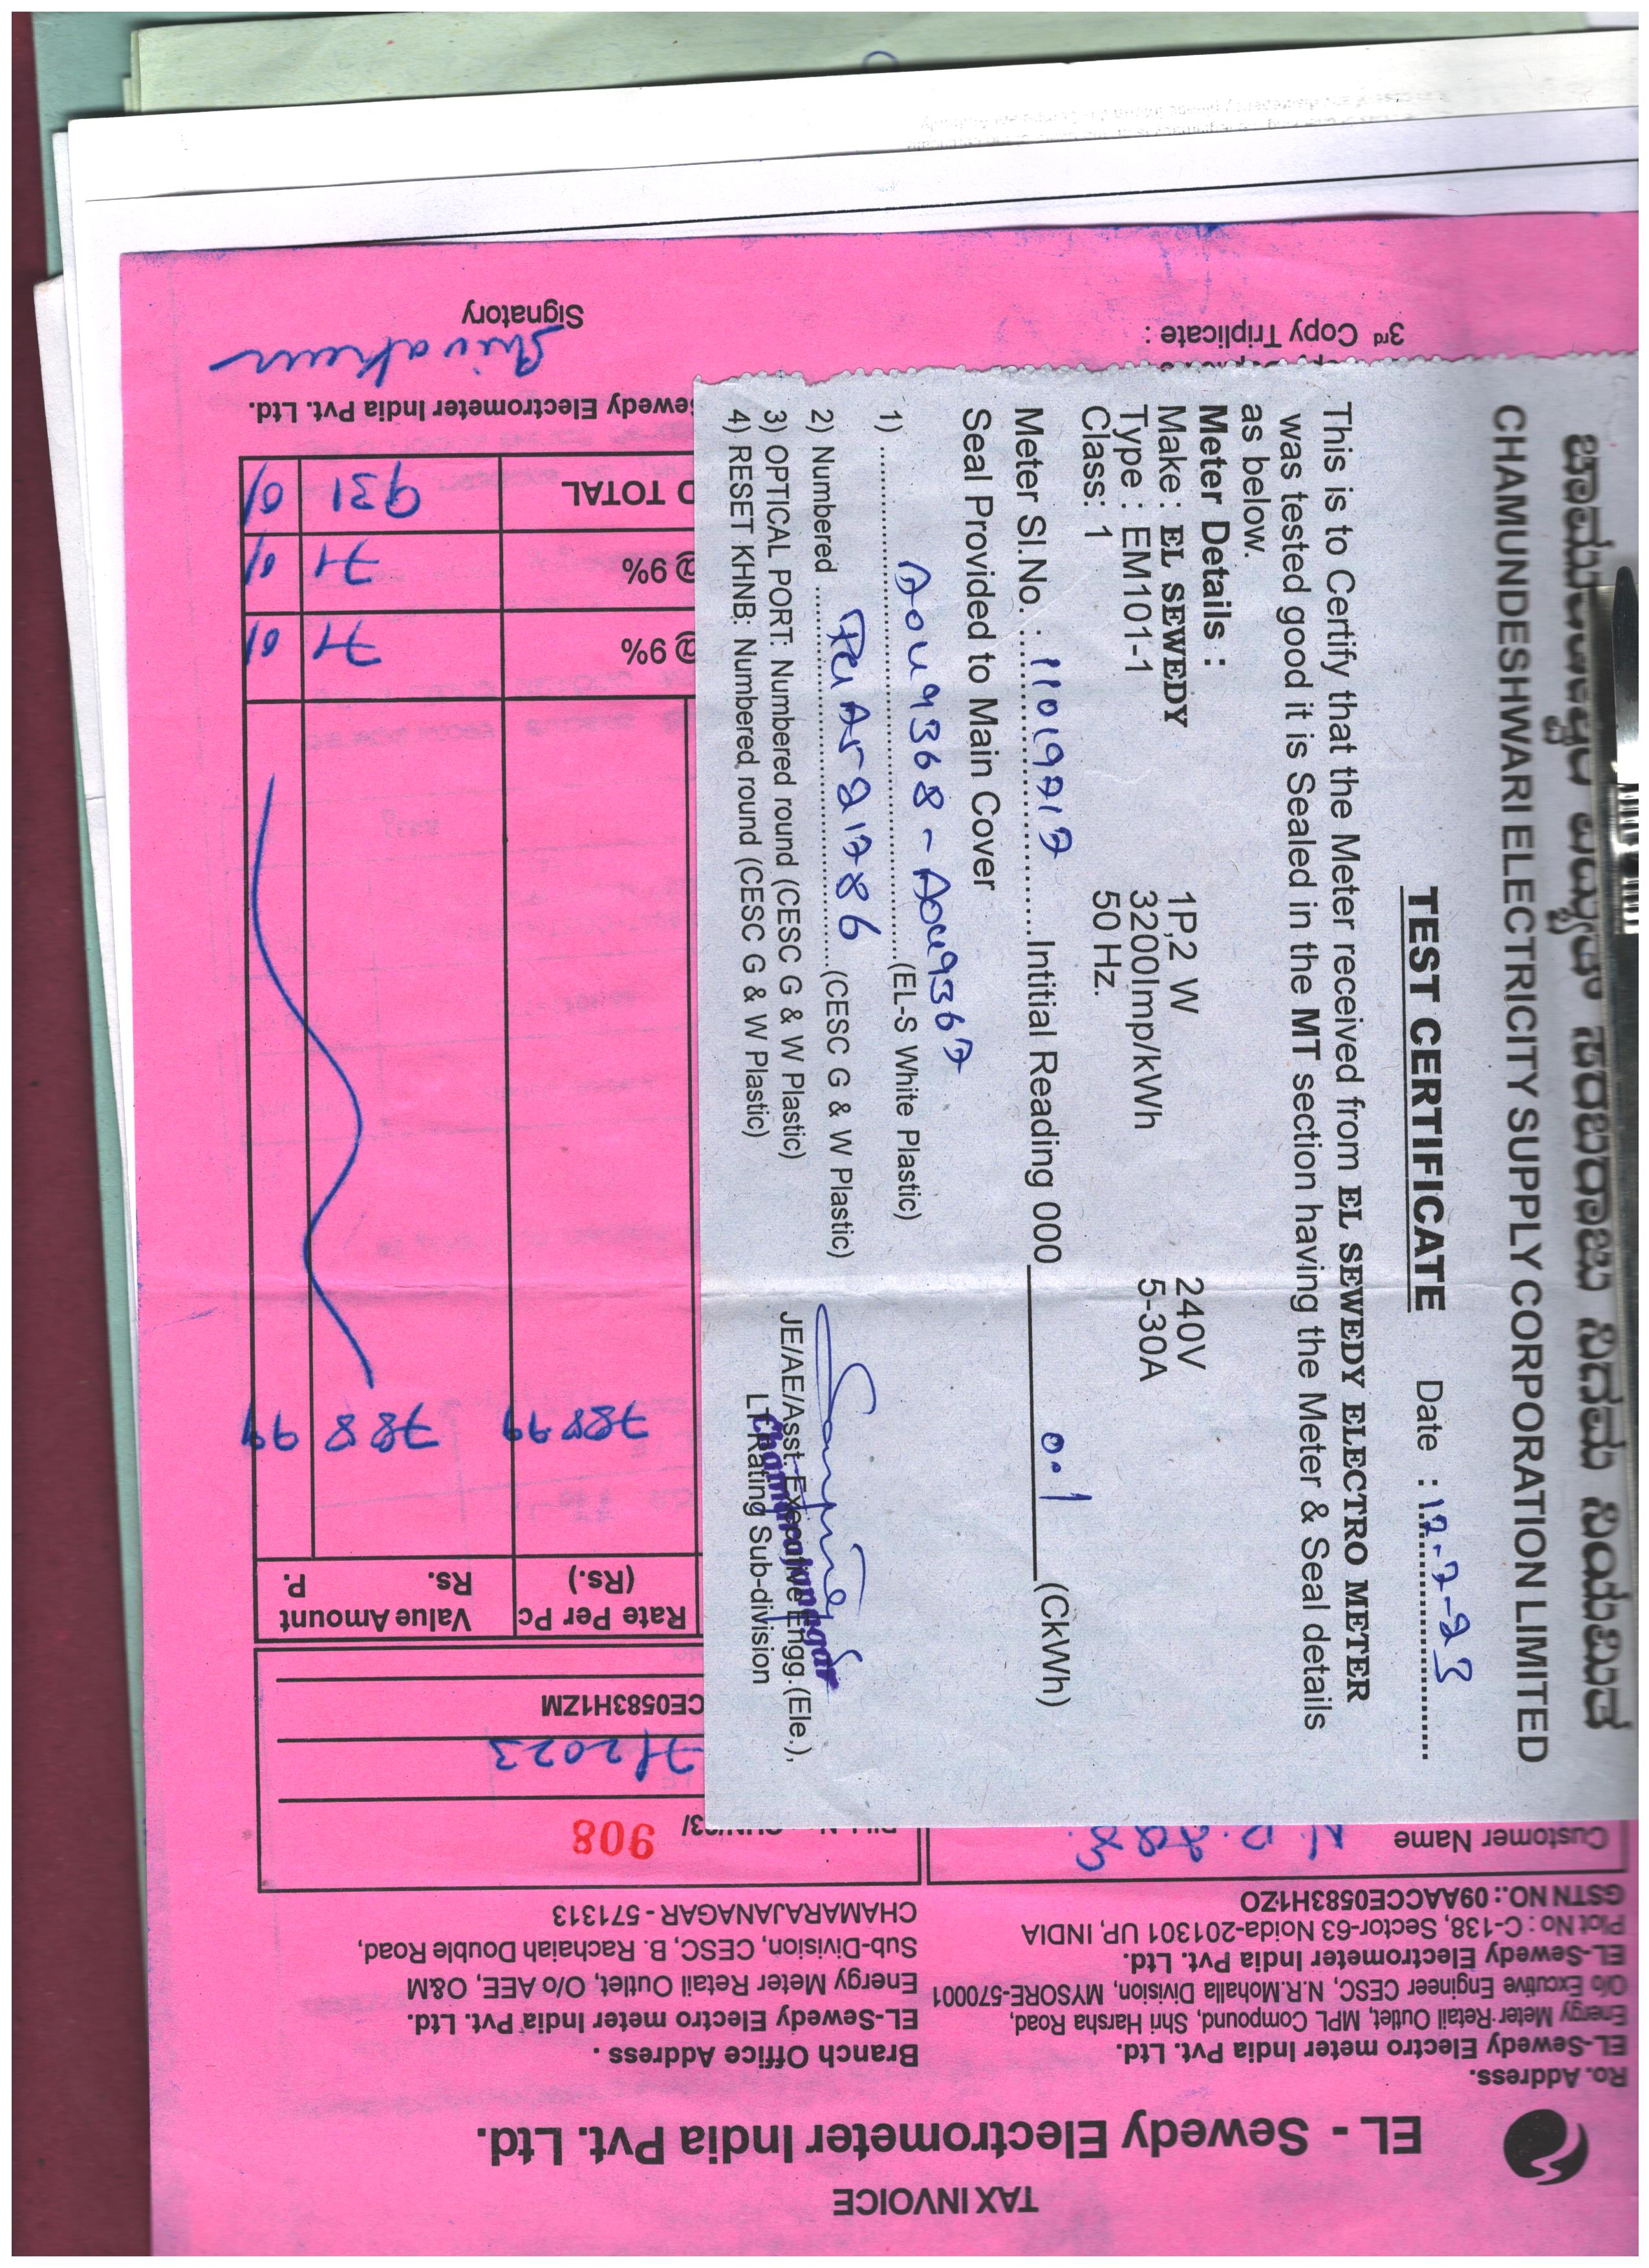 ಚಾಮುಂಡೇಶ್ವರಿ ವಿದ್ಯುತ್ ಸರಬರಾಜು ನಿಗಮ ನಿಯಮಿತ
CHAMUNDESHWARI ELECTRICITY SUPPLY CORPORATION LIMITED
TEST CERTIFICATE Date : 17-7-23
This is to Certify that the Meter received from EL SEWEDY ELECTRO METER
was tested good it is Sealed in the MT section having the Meter & Seal details
as below.
Meter Details :
Make : EL SEWEDY 1P,2 W 240V
Type : EM101-1 3200Imp/kWh 5-30A
Class: 1 50 Hz.
Meter Sl.No. : 11019717 Intitial Reading 000 0.1 (CkWh)
Seal Provided to Main Cover
1) (EL-S White Plastic)
2) Numbered (CESC G & W Plastic)
3) OPTICAL PORT: Numbered round (CESC G & W Plastic)
4) RESET KHNB: Numbered round (CESC G & W Plastic)
JE/AE/Asst. Executive Engg.(Ele.),
LT Rating Sub-division
Chamarajanagar
TAX INVOICE
EL - Sewedy Electrometer India Pvt. Ltd.
Ro. Address.
EL-Sewedy Electro meter India Pvt. Ltd.
Energy Meter Retail Outlet, MPL Compound, Shri Harsha Road,
O/o Executive Engineer CESC, N.R.Mohalla Division, MYSORE-570001
EL-Sewedy Electrometer India Pvt. Ltd.
Plot No : C-138, Sector-63 Noida-201301 UP, INDIA
GSTN NO.: 09AACCE0583H1ZO
Branch Office Address .
EL-Sewedy Electro meter India Pvt. Ltd.
Energy Meter Retail Outlet, O/o AEE, O&M
Sub-Division, CESC, B. Rachaiah Double Road,
CHAMARAJANAGAR - 571313
Customer Name
908
7/2023
CE0583H1ZM
Rate Per Pc Value Amount
(Rs.) Rs. P.
788 99 788 99
@ 9% 71 01
@ 9% 71 01
TOTAL 931 01
Sewedy Electrometer India Pvt. Ltd.
3rd Copy Triplicate :
Signatory